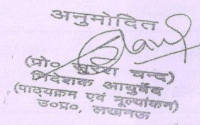 अनुमोदित
(प्रो० सुरेश चन्द)
निदेशक आयुर्वेद
(पाठ्यक्रम एवं मूल्यांकन)
उ०प्र०, लखनऊ